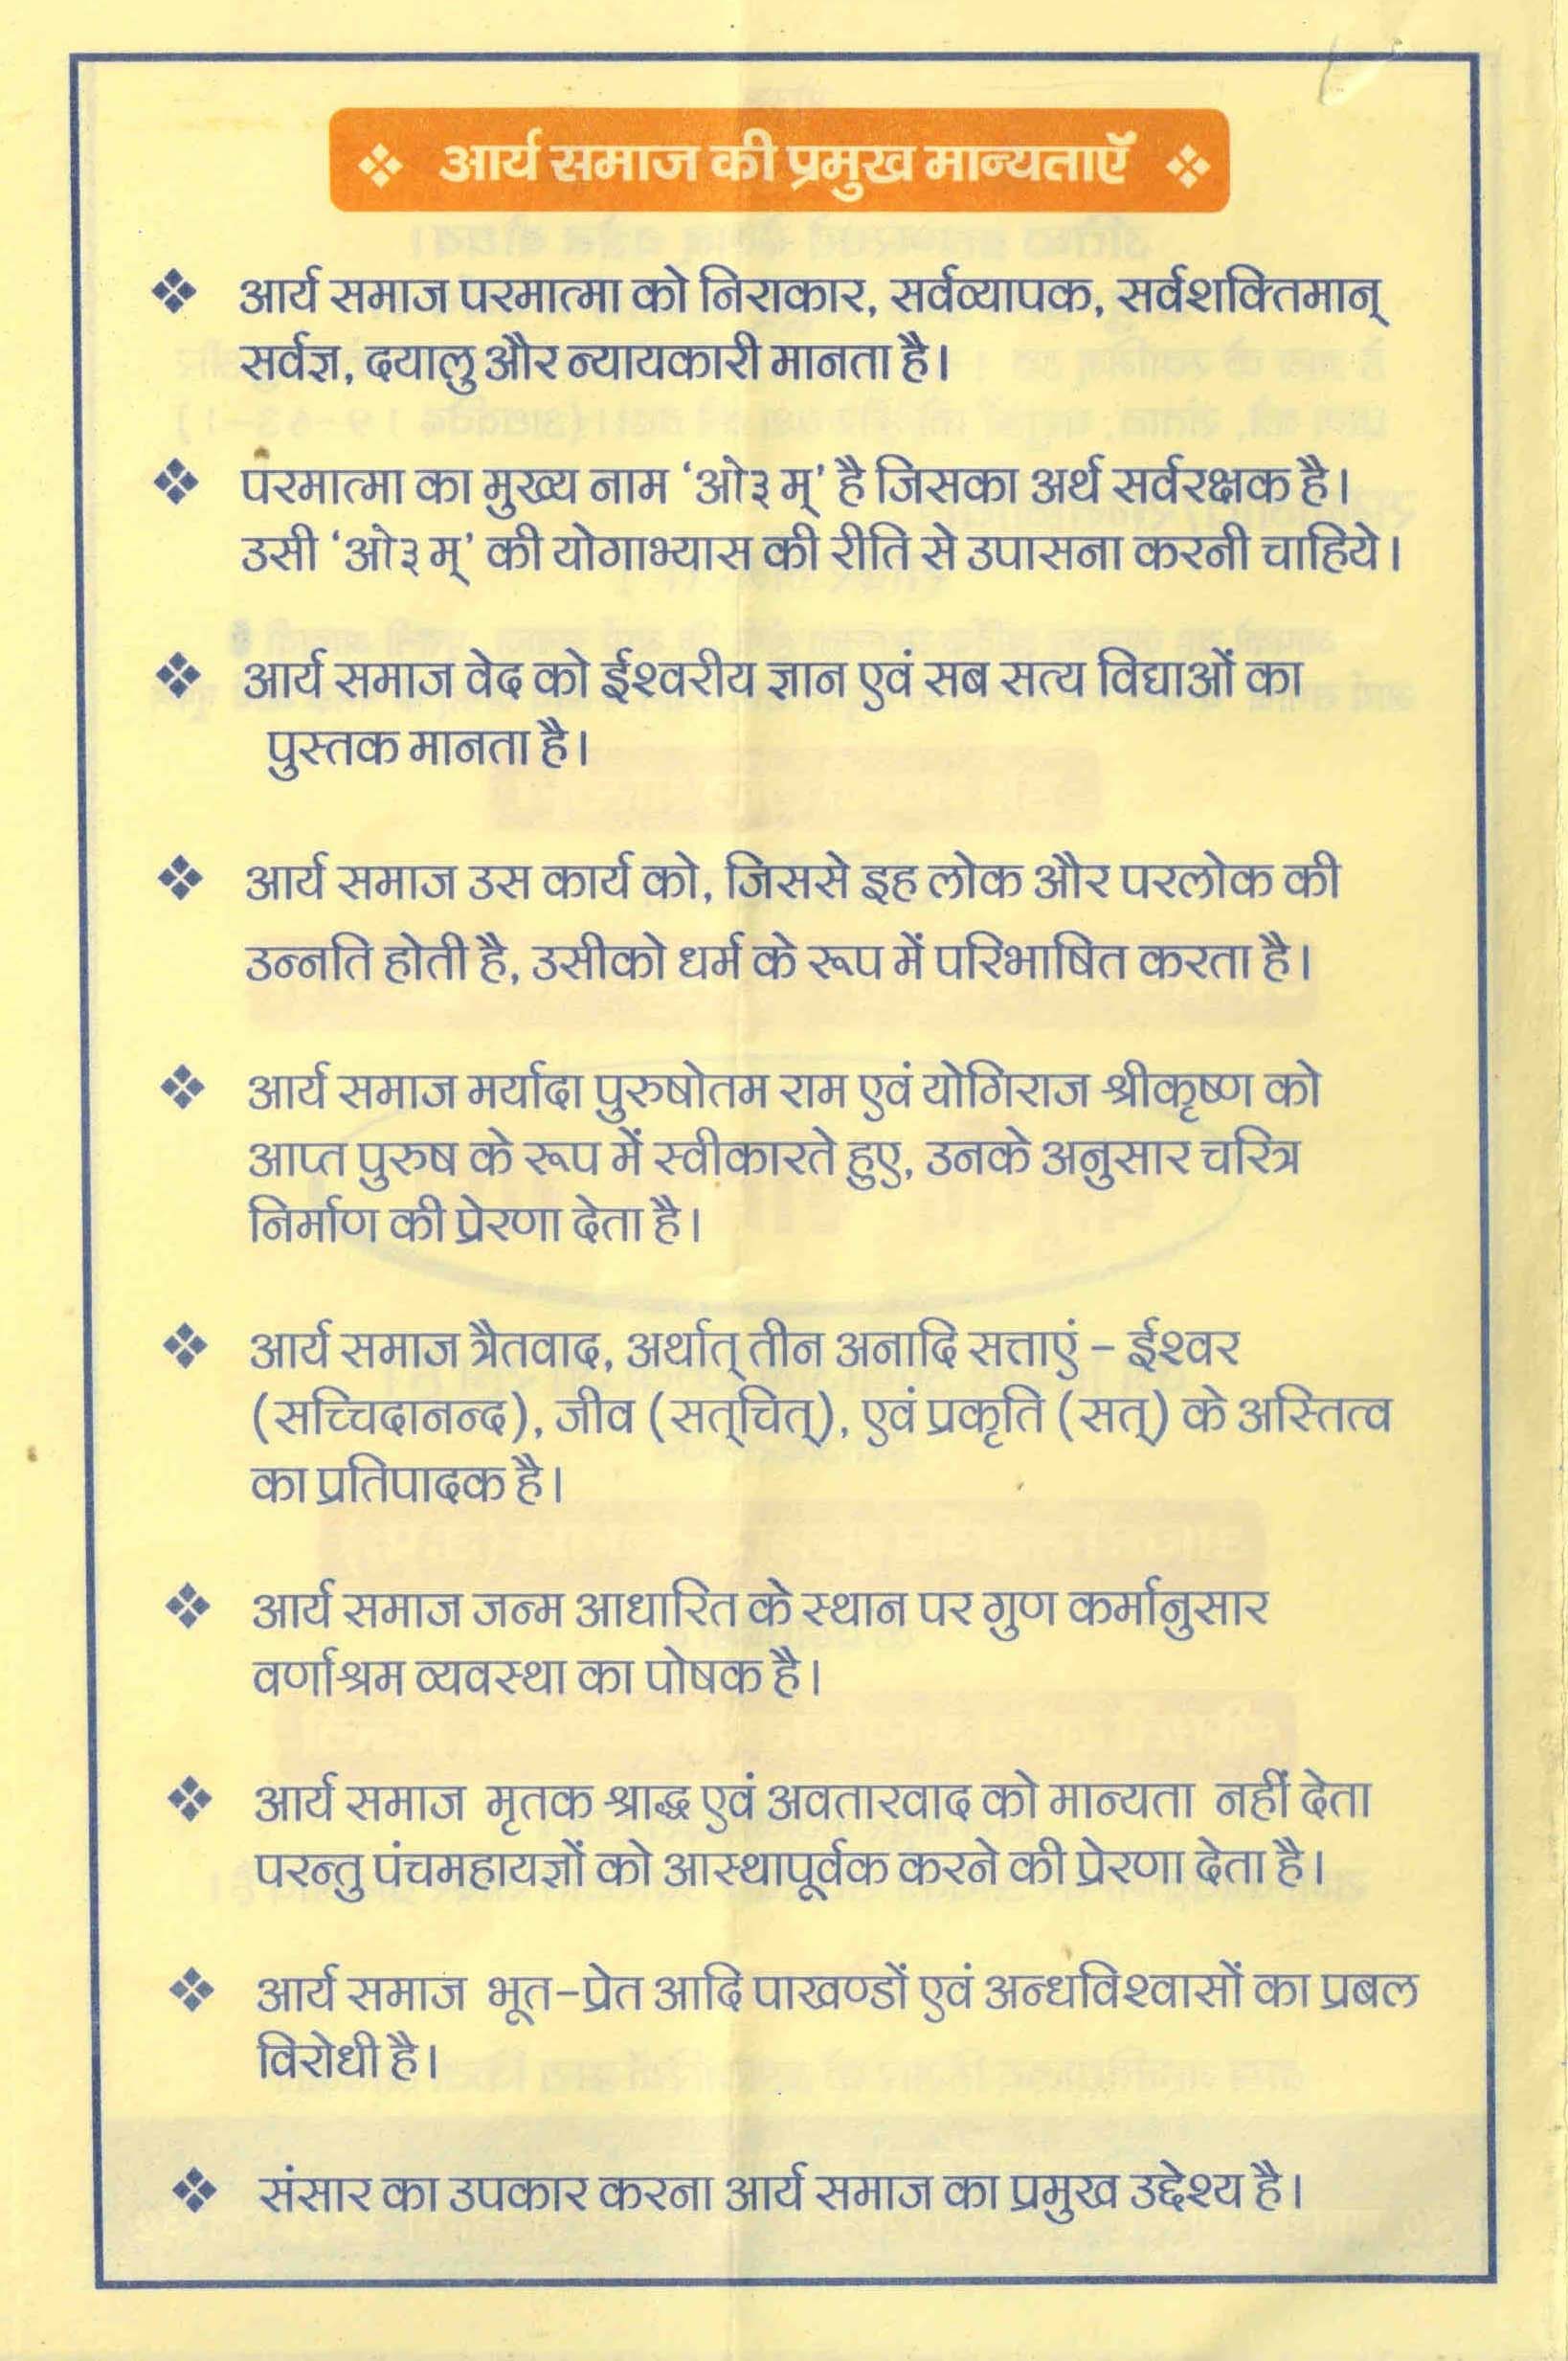 ❖ आर्य समाज की प्रमुख मान्यताएँ ❖
❖ आर्य समाज परमात्मा को निराकार, सर्वव्यापक, सर्वशक्तिमान्
सर्वज्ञ, दयालु और न्यायकारी मानता है।
❖ परमात्मा का मुख्य नाम ‘ओ३म्’ है जिसका अर्थ सर्वरक्षक है।
उसी ‘ओ३म्’ की योगाभ्यास की रीति से उपासना करनी चाहिये।
❖ आर्य समाज वेद को ईश्वरीय ज्ञान एवं सब सत्य विद्याओं का
पुस्तक मानता है।
❖ आर्य समाज उस कार्य को, जिससे इह लोक और परलोक की
उन्नति होती है, उसीको धर्म के रूप में परिभाषित करता है।
❖ आर्य समाज मर्यादा पुरुषोतम राम एवं योगिराज श्रीकृष्ण को
आप्त पुरुष के रूप में स्वीकारते हुए, उनके अनुसार चरित्र
निर्माण की प्रेरणा देता है।
❖ आर्य समाज त्रैतवाद, अर्थात् तीन अनादि सत्ताएं – ईश्वर
(सच्चिदानन्द), जीव (सत्‌चित्), एवं प्रकृति (सत्) के अस्तित्व
का प्रतिपादक है।
❖ आर्य समाज जन्म आधारित के स्थान पर गुण कर्मानुसार
वर्णाश्रम व्यवस्था का पोषक है।
❖ आर्य समाज मृतक श्राद्ध एवं अवतारवाद को मान्यता नहीं देता
परन्तु पंचमहायज्ञों को आस्थापूर्वक करने की प्रेरणा देता है।
❖ आर्य समाज भूत-प्रेत आदि पाखण्डों एवं अन्धविश्वासों का प्रबल
विरोधी है।
❖ संसार का उपकार करना आर्य समाज का प्रमुख उद्देश्य है।